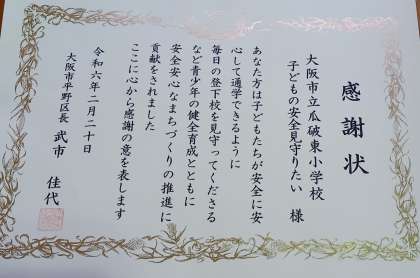 感謝状
大阪市立瓜破東小学校
子どもの安全見守りたい 様
あなた方は子どもたちが安全に安
心して通学できるように
毎日の登下校を見守ってくださる
など青少年の健全育成とともに
安全安心なまちづくりの推進に
貢献をされました
ここに心から感謝の意を表します
令和六年二月二十日
大阪市平野区長 武市 佳代